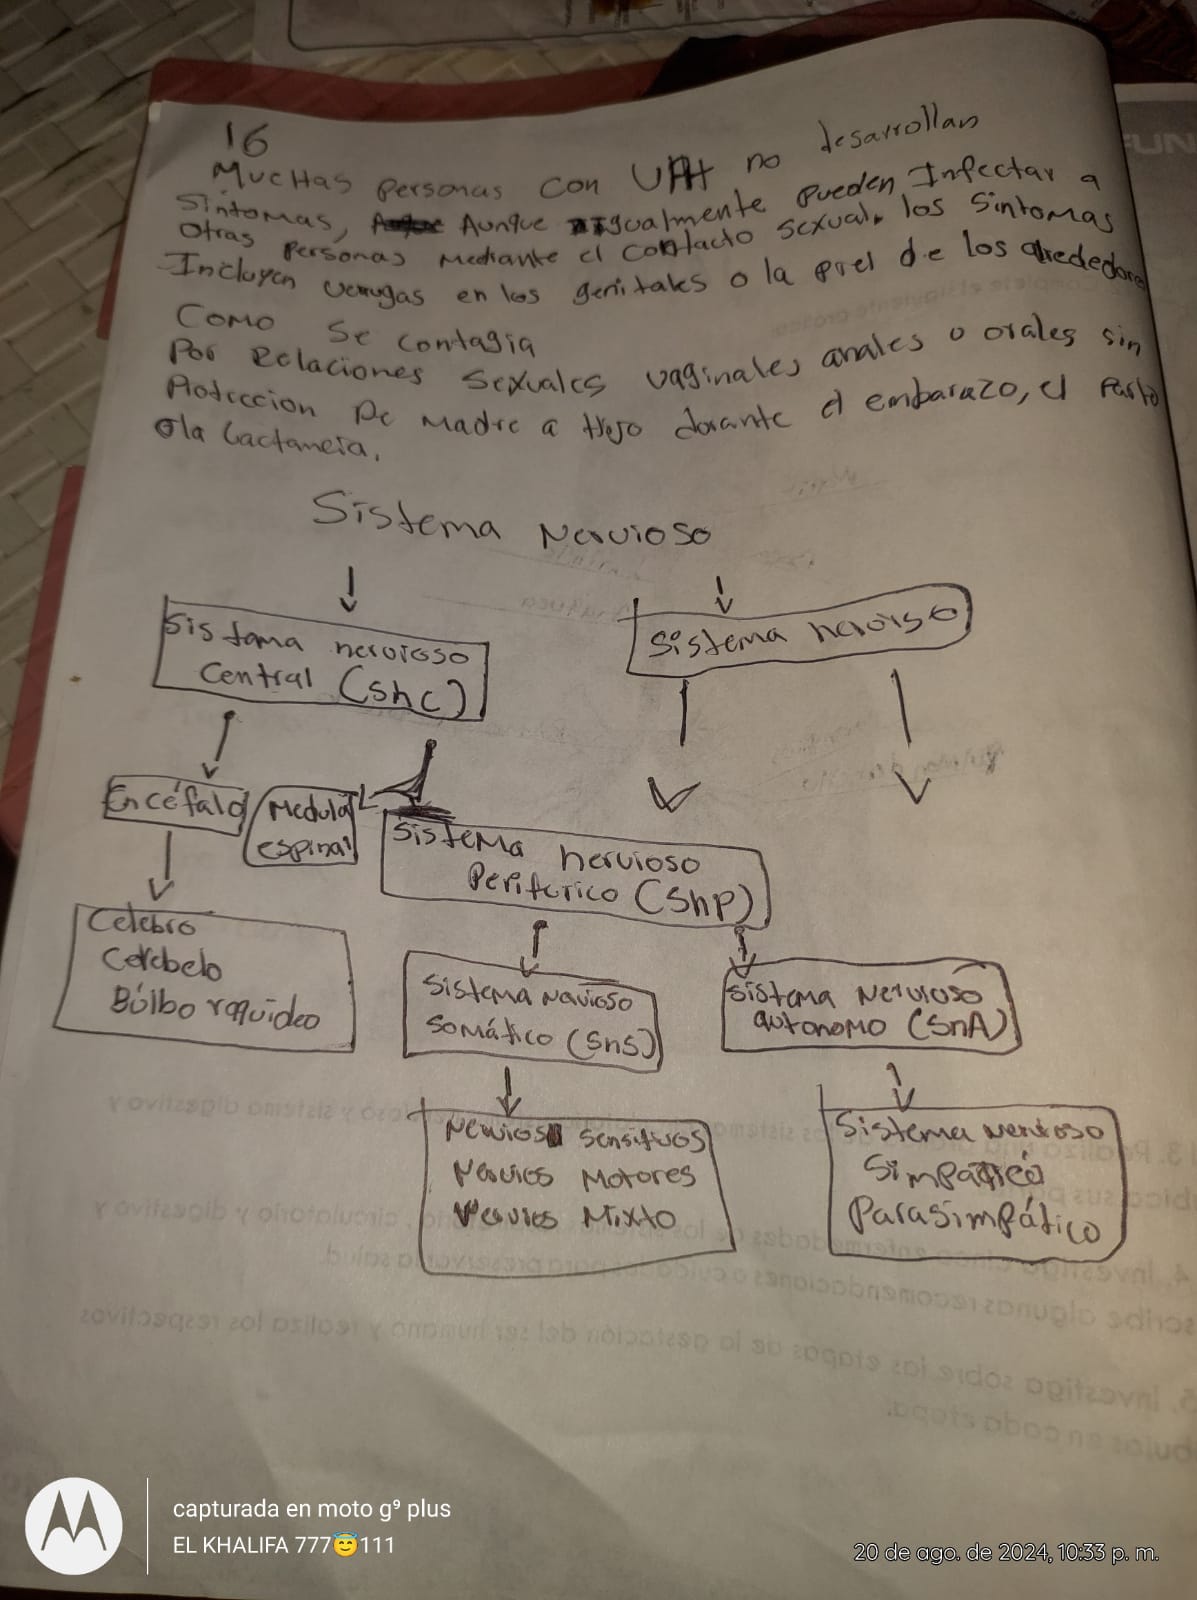 16
Muchas personas con VPH no desarrollan
sintomas, Aunque igualmente pueden Infectar a
otras personas mediante el contacto sexual. los sintomas
Incluyen verrugas en los genitales o la piel de los alrededores
Como se contagia
Por Relaciones sexuales vaginales anales o orales sin
Proteccion De madre a Hijo durante el embarazo, el parto
o la Lactancia.
Sistema Nervioso
Sistama nervioso
Central (Snc)
Sistema nervioso
Encéfalo
Medula
espinal
Sistema nervioso
Periferico (Snp)
Celebro
Cerebelo
Búlbo raquideo
Sistema Navioso
Somático (SnS)
Sistema Nervioso
autonomo (SnA)
Nervios Sensitivos
Nervios Motores
Nervios Mixto
Sistema Nervioso
Simpatico
Parasimpático
capturada en moto g⁹ plus
EL KHALIFA 777😇111
20 de ago. de 2024, 10:33 p. m.